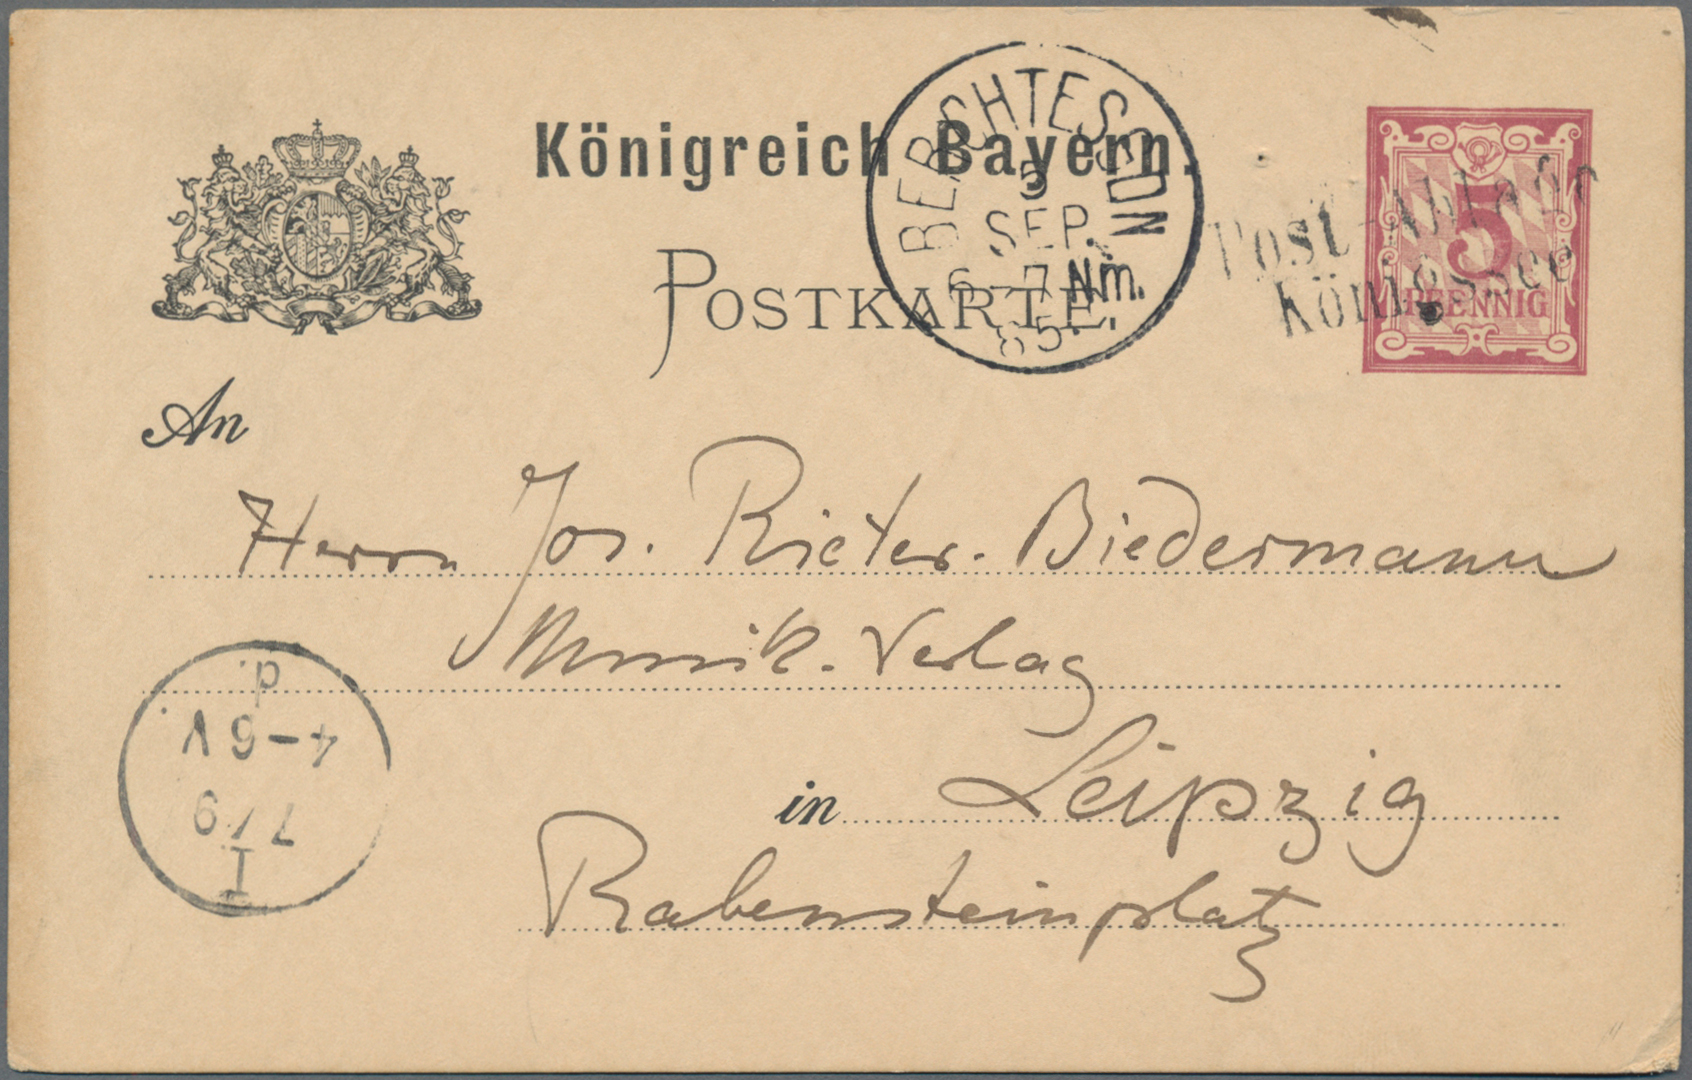 Königreich Bayern.
POSTKARTE.
BERCHTESGDN
5
SEP.
6-7 Nm.
85.
Post-Ablage
Königssee
5
PFENNIG
An
Herrn Jos. Rieter-Biedermann
Musik-Verlag
in Leipzig
Rabensteinplatz
I
7/9
4-6 V.
d.